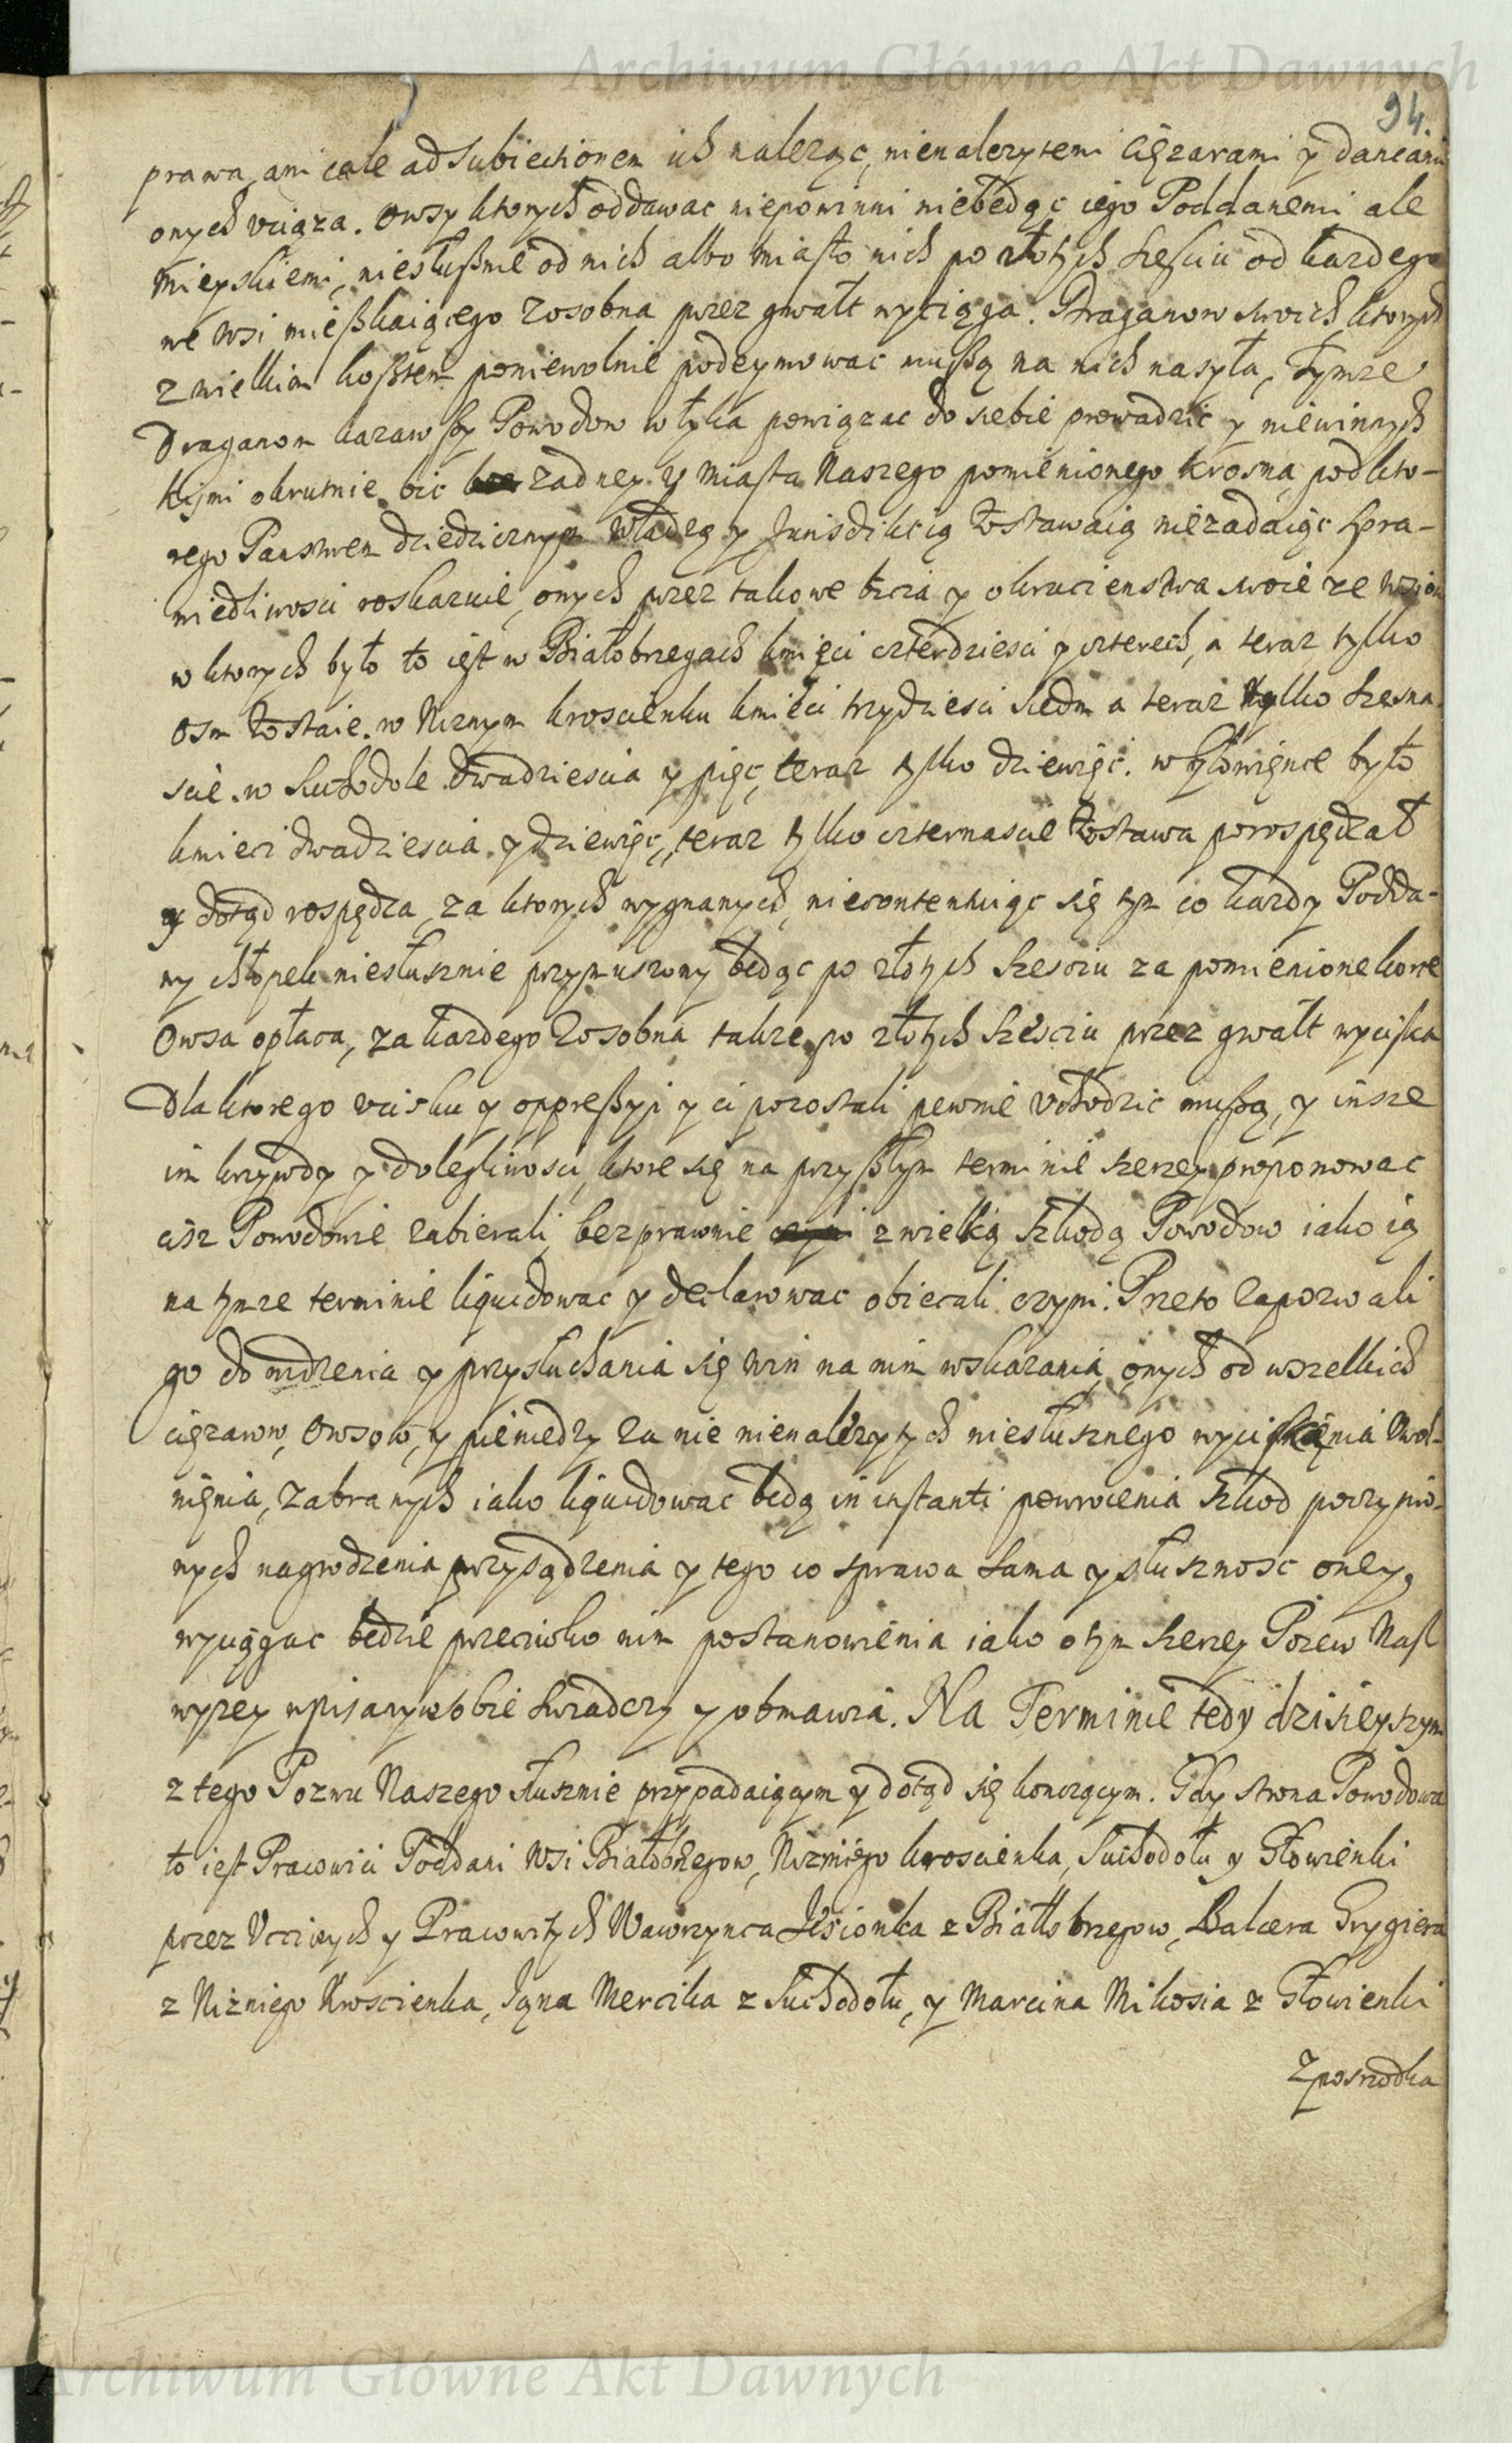 Archiwum Główne Akt Dawnych
94.
prawa, ani cale ad subiectionem ich naleząc, nienalezytemi cięzarami y daniami
onych uciąza. Owsy ktorych oddawac niepowinni niebędąc iego Poddanemi ale
Mieyskiemi, niesłußnie od nich albo miasto nich po złotych sesciu od kazdego
we wsi mießkaiącego zosobna przez gwałt wyciąga. Draganow swoich ktorych
z wielkim kosztem poniewolnie podeymowac mußą na nich nasyła, tymze
Draganom kazawßy Powodow w łyka powiązac do siebie prowadzic y niewinnych
kiymi okrutnie bic zadney z Miasta Naszego pomienionego Krosna, pod kto-
rego Panstwem dziedzicznym władzą y Jurisdikcią zostawaią niezadaiąc spra-
wiedliwosci roskazuie, onych przez takowe bicia y okrucienstwa swoie ze wsiow
w ktorych było to iest w Białobrzegach kmieci czterdziesci y czterech, a teraz tylko
osm zostaie. w Niznym Kroscienku kmieci trzydziesci siedm a teraz tylko szesna
scie. w Suchodole dwadziescia y pięc, teraz tylko dziewięc. w Głowięnce było
kmieci dwadziescia y dziewięc, teraz tylko czternascie zostawa porospędzał
y dotąd rospędza, za ktorych wygnanych, niecontentuiąc się tym co kazdy Podda-
ny chłopek niesłusznie przymuszony będąc po złotych szesciu za pomienione korce
Owsa opłaca, za kazdego zosobna takze po złotych szesciu przez gwałt wyciska
Dla ktorego ucisku y oppreßyi y ci pozostali pewnie uchodzic mußą, y insze
im krzywdy y dolegliwosci, ktore się na przyßłym terminie szerzey proponowac
ciz Powodowie zabierali, bezprawnie z wielką szkodą Powodow iako ią
na tymze terminie liquidowac y declarowac obierali czyni. Przeto zapozwali
go do widzenia y przysłuchania się win na nim wskazania, onych od wszelkich
cięzarow, Owsow, y pieniedzy za nie nienalezytych niesłusznego wyciskania uwol-
nięnia, zabranych iako liquidowac będą in instanti powrocenia szkod poczynio-
nych nagrodzenia przysądzenia y tego co sprawa sama y słusznosc oney,
wyciągac będzie przeciwko nim postanowienia iako o tym szerzey Pozew Nasz
wyzey wpisany w sobie swiadczy y obmawia. Na Terminie tedy dzisieyszym
z tego Pozwu Naszego słusznie przypadaiącym y dotąd się konczącym. Gdy strona Powodowa
to iest Pracowici Poddani wsi Białobrzegow, Nizniego Kroscienka, Suchodołu y Głowienki
przez Uczciwych y Pracowitych Wawrzynca Jesionka z Białlobrzegow, Balcera Grygiera
z Nizniego Kroscienka, Jąna Mercika z Suchodołu, y Marcina Mikosia z Głowienki
Zposrzodka
Archiwum Główne Akt Dawnych